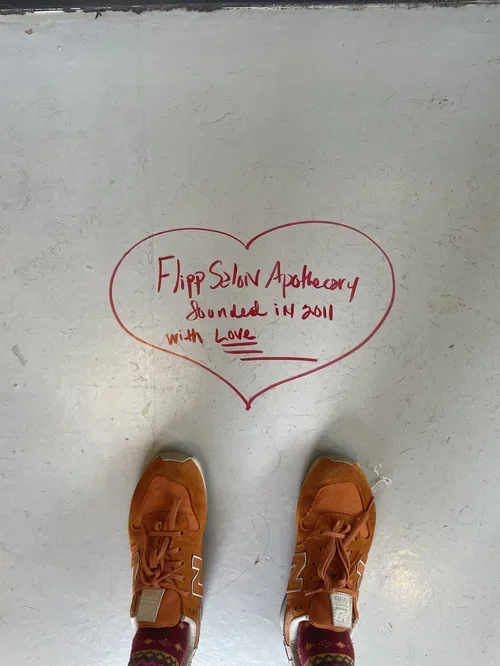 Flipp Salon Apothecary
founded in 2011
with Love
N
N